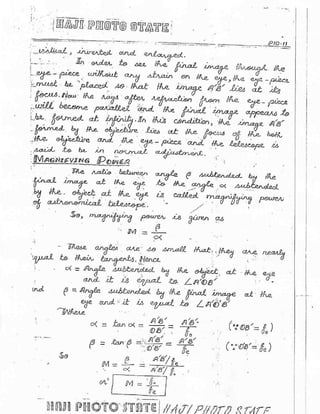 HAJI PHOTO STATE
P10-11
virtual, inverted and enlarged.
In order to see the final image through the
eye-piece without any strain on the eye, the eye-piece
must be placed so that the image A'B' lies at its
focus. Now the rays after refraction from the eye-piece
will become parallel and the final image appears to
be formed at infinity. In this condition, the image A'B'
formed by the objective lies at the focus of the both
the objective and the eye-piece and the telescope is
said to be in normal adjustment.
MAGNIFYING POWER
The ratio between angle β subtended by the
final image at the eye to the angle α subtended
by the object at the eye is called magnifying power
of astronomical telescope.
So, magnifying power is given as
M = β/α
These angles are so small that they are nearly
equal to their tangents. Hence
α = Angle subtended by the object, at the eye
and it is equal to ∠A'OB'
and β = Angle subtended by the final image at the
eye and it is equal to ∠A'O'B'
Where
α = tan α = A'B'/OB' = A'B'/fo (∵ OB' = fo)
β = tan β = A'B'/O'B' = A'B'/fe (∵ O'B' = fe)
So M = β/α = A'B'/fe / A'B'/fo
or M = fo/fe
HAJI PHOTO STATE HAJI PHOTO STATE